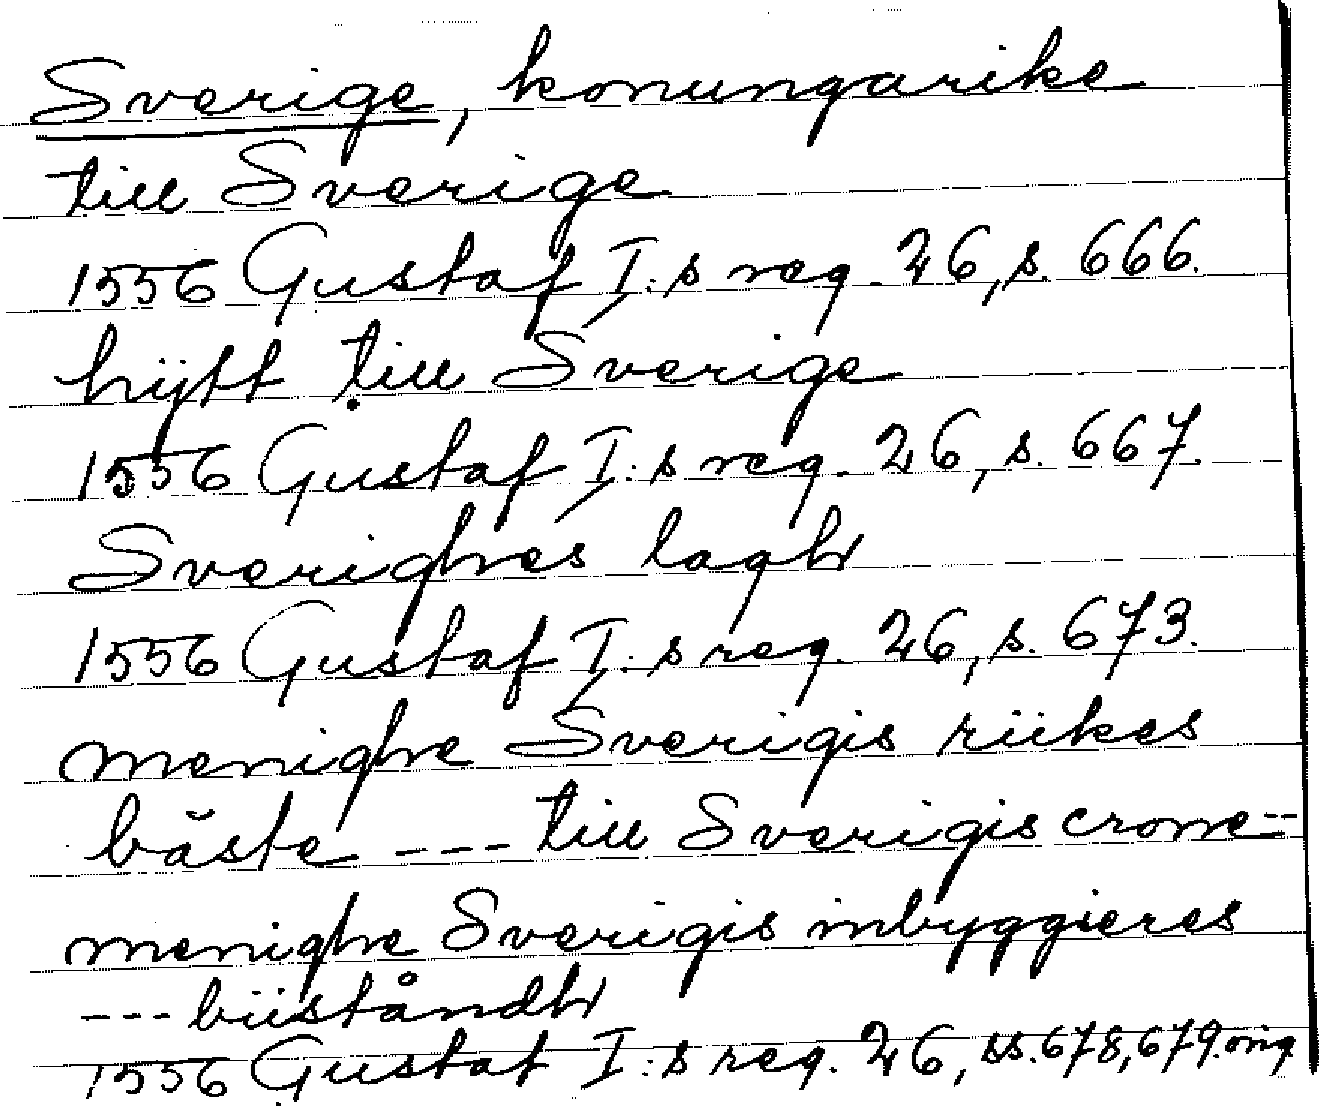 Sverige, konungarike
till Sverige
1556 Gustaf I:s reg. 26, s. 666.
hijtt till Sverige
1556 Gustaf I:s reg. 26, s. 667.
Sverighes lagh
1556 Gustaf I:s reg. 26, s. 673.
menighe Sverigis riikes
bäste --- till Sverigis crone --
menighe Sverigis inbyggieres
--- biiståndh
1556 Gustaf I:s reg. 26, ss. 678, 679. orig